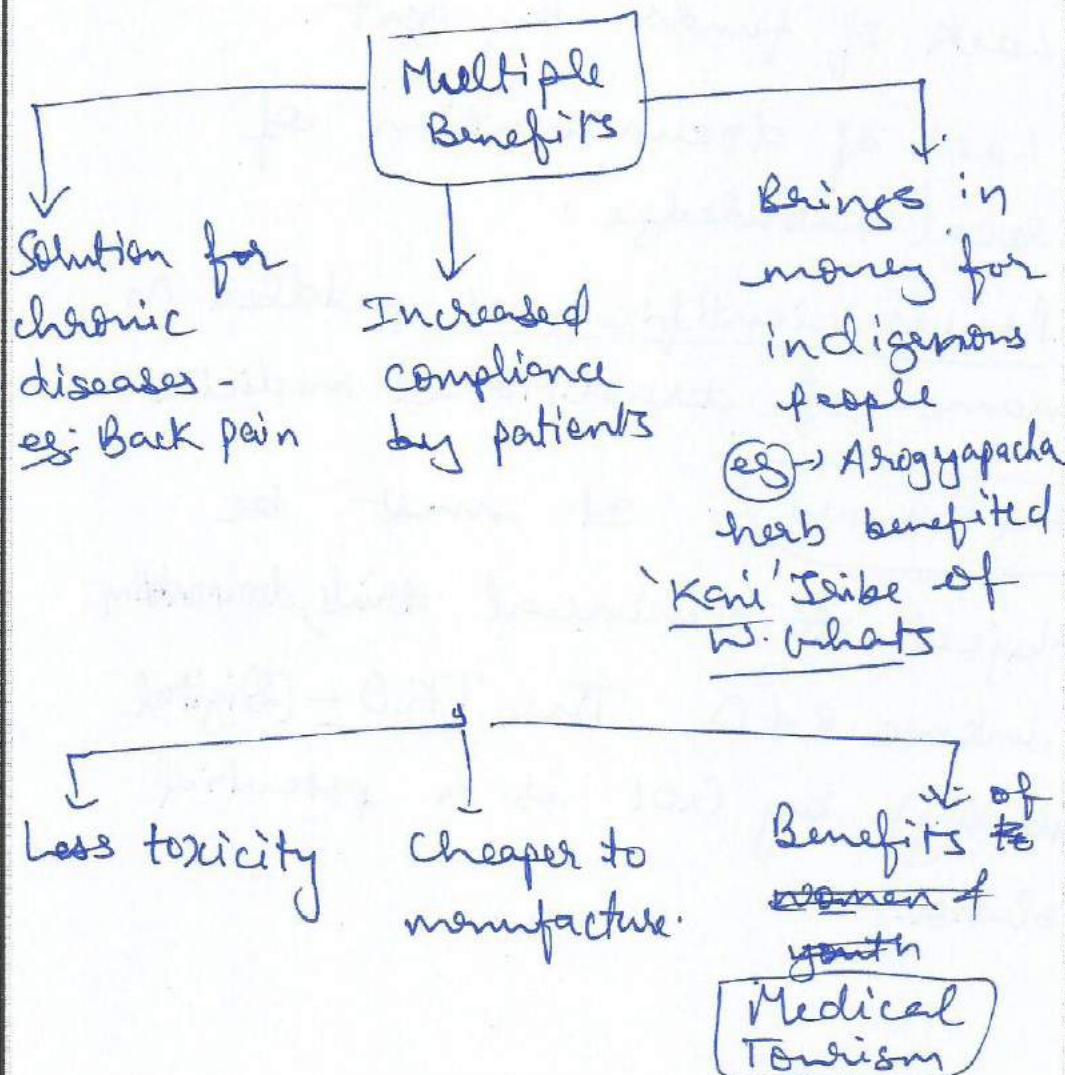 Multiple
Benefits
Solution for
chronic
diseases -
eg: Back pain
Increased
compliance
by patients
Brings in
money for
indigenous
people
eg → Arogyapacha
herb benefited
'Kani' Tribe of
W. Ghats
Less toxicity
Cheaper to
manufacture.
Benefits to of
women &
youth
Medical
Tourism